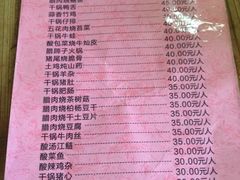 干锅鸭杂
蒜香竹鸡
干锅仔排 40.00元/人
五花肉烧苕菜 40.00元/人
干锅牛蛙 40.00元/人
酸包菜烧牛灿皮 40.00元/人
腊蹄子火锅 40.00元/人
猪尾烧脆骨 40.00元/人
土鸡炖山药 40.00元/人
干锅羊杂 40.00元/人
干锅猪肚 40.00元/人
干锅肥肠 35.00元/人
腊肉烧茶树菇 35.00元/人
腊肉烧柏杨豆干 35.00元/人
腊肉烧干土豆片 35.00元/人
腊肉烧豆腐 35.00元/人
干锅牛肉丝 35.00元/人
酸汤江鲢 35.00元/人
酸菜鱼 30.00元/人
酸辣鸡杂 30.00元/人
干锅猪心 30.00元/人